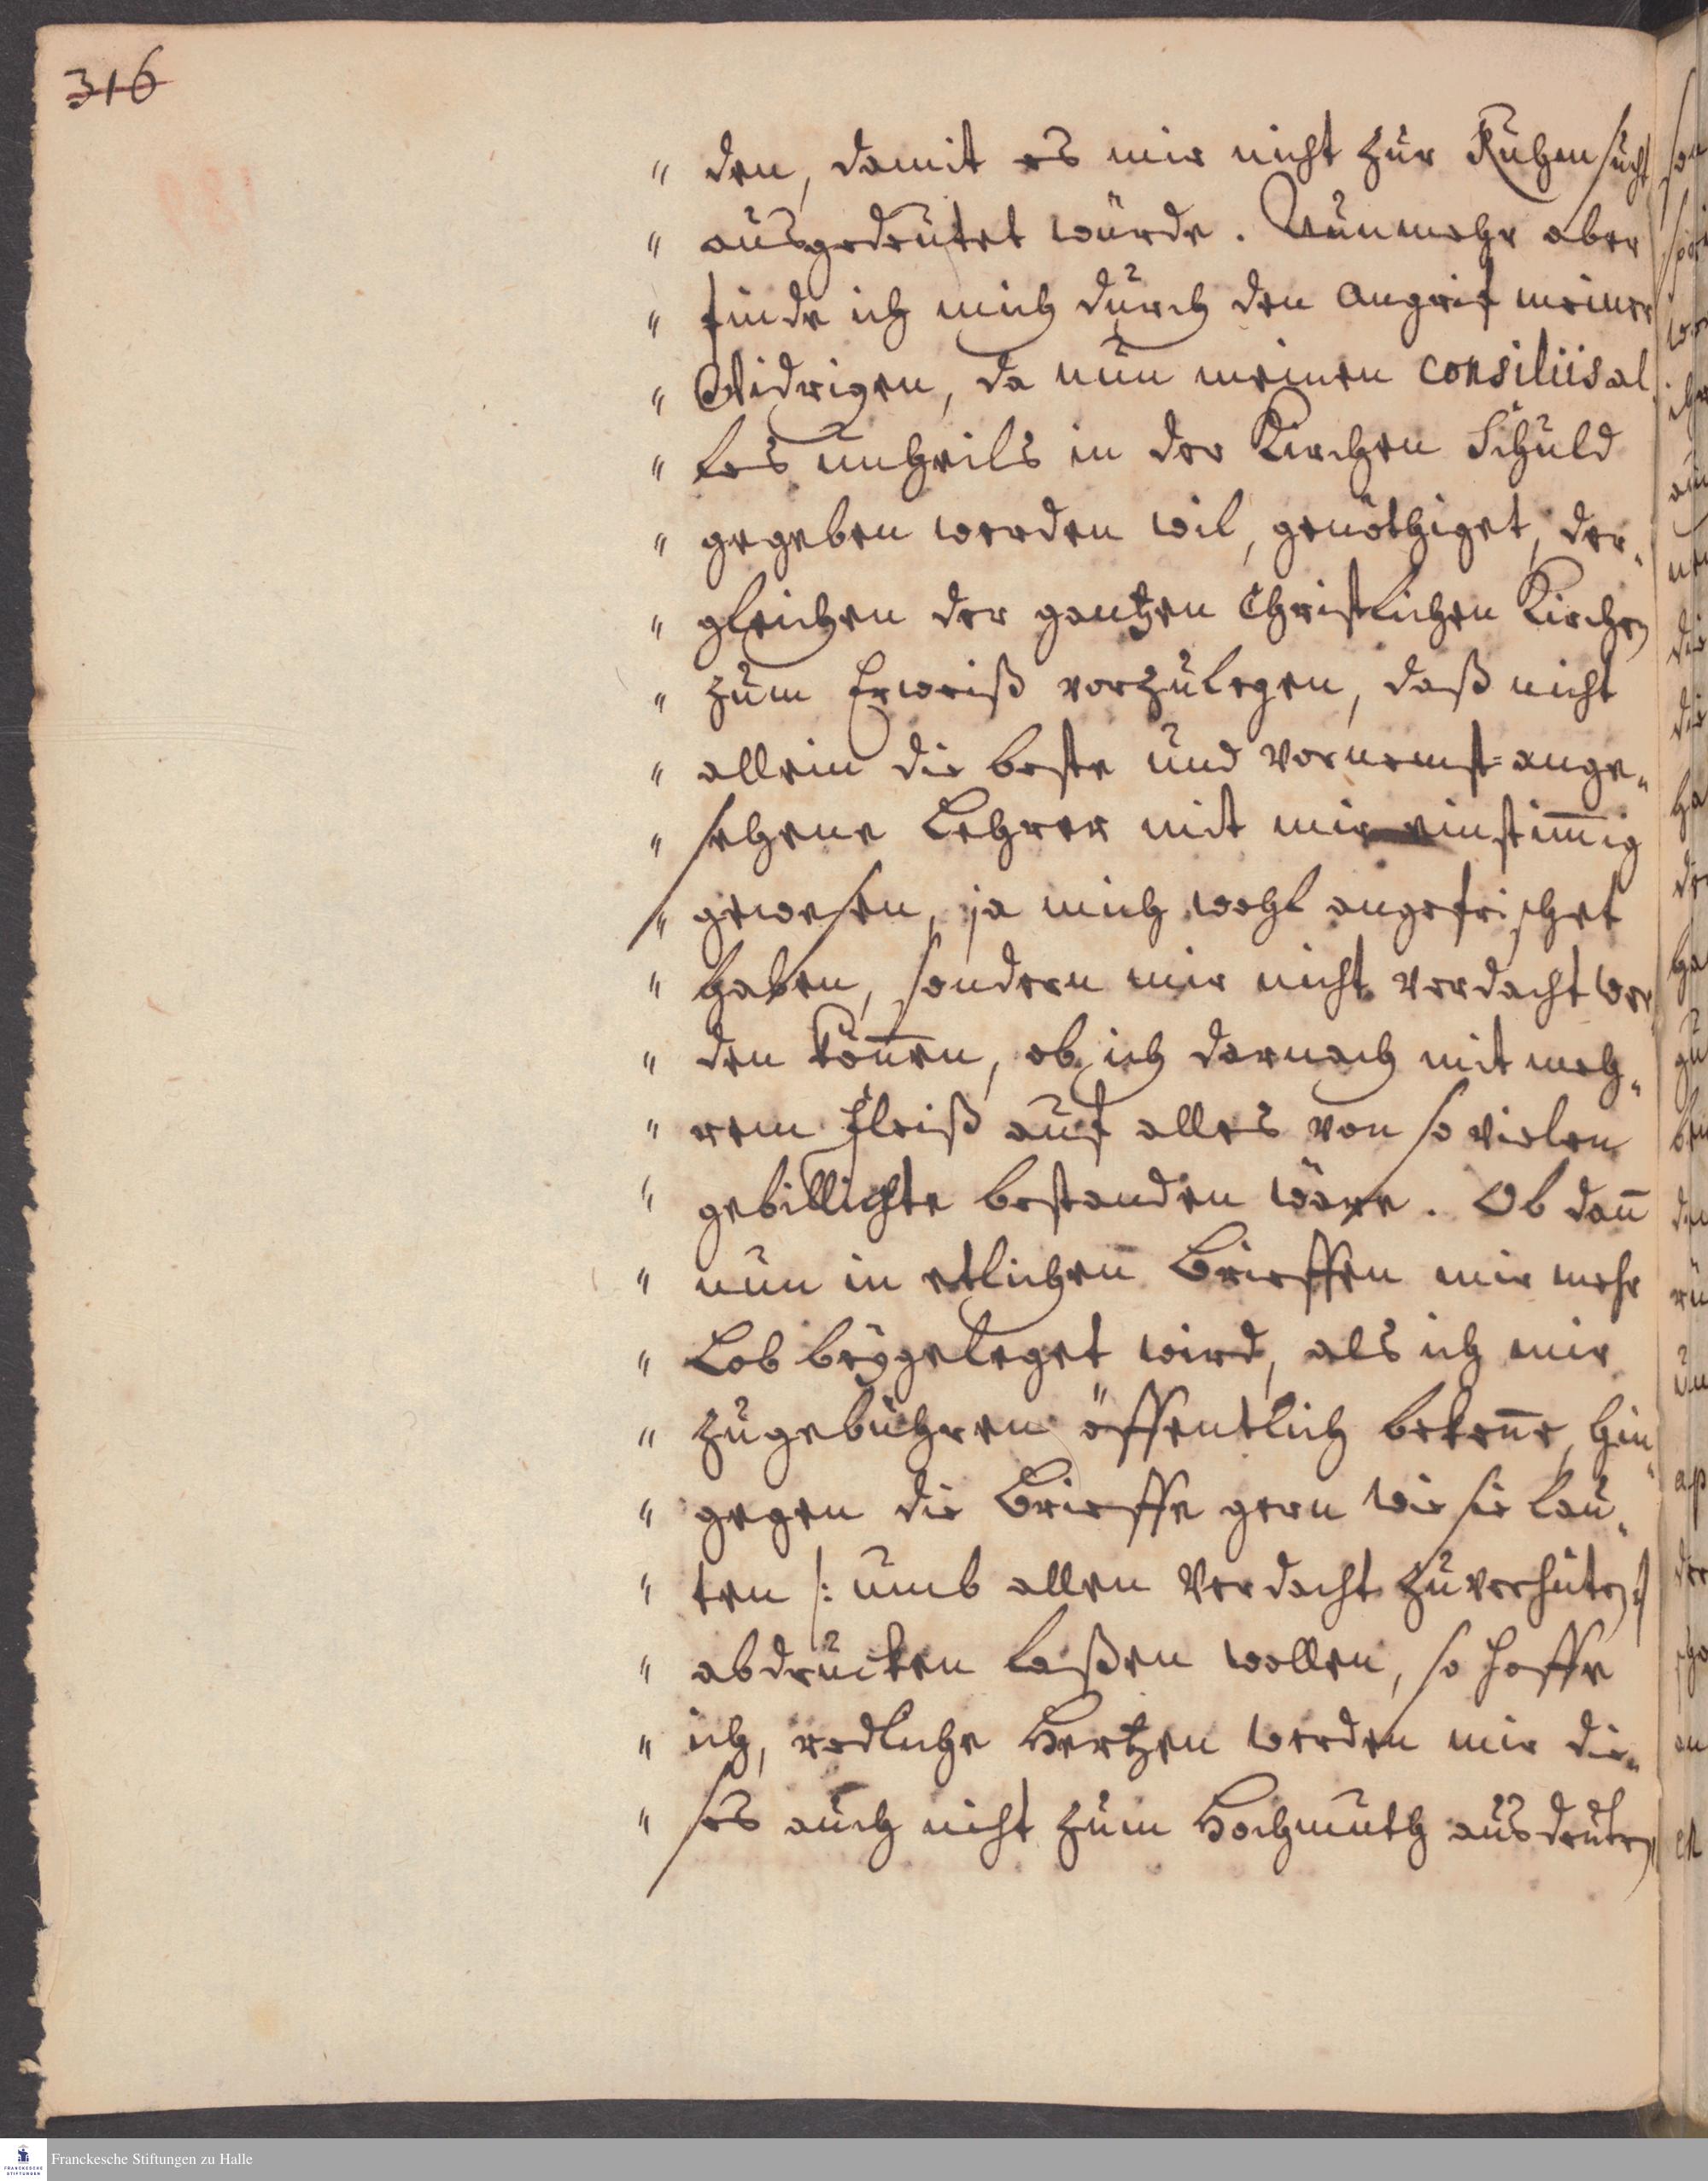 316
" den, damit es mir nicht zur Ruhmsucht
" ausgedeutet würde. Nunmehr aber
" finde ich mich durch den Angrif meiner
" Widrigen, da nun meinen consiliis al
" les unheils in der Kirchen Schuld
" gegeben werden wil, genöthiget, der„
" gleichen der gantzen Christlichen Kirchen
" zum Erweiß vorzulegen, daß nicht
" allein die beste und vornemst-ange„
" sehene Lehrer mit mir einstim̄ig
" gewesen, ja mich wohl angefrischet
" haben, sondern mir nicht verdacht wer
" den kön̄en, ob ich darnach mit meh„
" rem Fleiß auf alles von so vielen
" gebillichte bestanden wäre. Ob dan̄
" nun in etlichen Brieffen mir mehr
" Lob beygeleget wird, als ich mir
" zugebühren öffentlich beken̄e, hin„
" gegen die Brieffe gern wie sie lau„
" ten /: umb allen Verdacht zuverhüten :/
" abdrucken laßen wollen, so hoffe
" ich, redliche Hertzen werden mir die„
" ses auch nicht zum Hochmuth ausdeuten,
Franckesche Stiftungen zu Halle